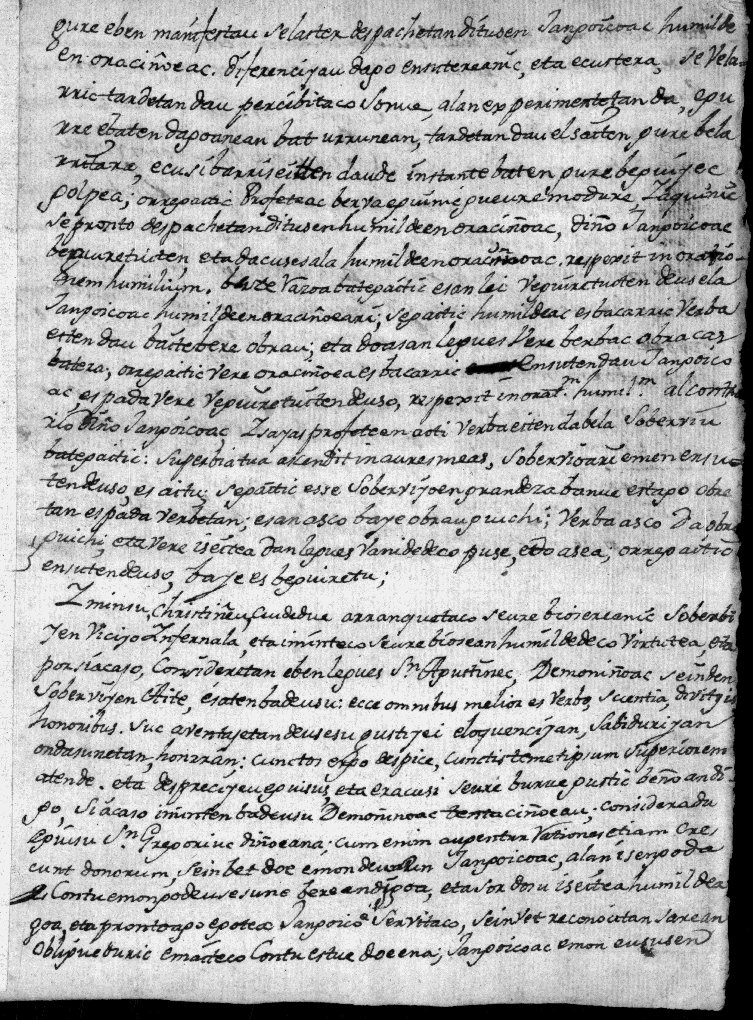 gure eben manifestau selaster despachetan ditusen Janpoicoac humilde
en oraciñoeac. diferenciyau dapo ensutereanic, eta ecustera, se Vela
rric tardetan dau percibitaco sonue, alan experimentetan da, epu
rre ebaten dapoanean bat urrunean, tardetan dau elsecten pure bela
rritara, ecusi barriseitten daude instante baten pure bepuijec
polpea; orrepaitic Profeteac
se pronto despachetan ditusen humildeen oraciñoac, diño Janpoicoac
bepuretuten eta dacusesala humildeen oraciñoac. respexit in oratio
nem humilium. baste Vazoa batepaitic esan lei Vepuiretuten deusela
Janpoicoac humildeen oraciñoeari; sepaitic humildeac esbacarric Verba
eiten dau baitebere obrau; eta doa san lepues Vere berbac obracaz
batera; orrepaitic Vere oraciñoea esbacarric ensuten dau Janpoico
ac espada Vere Vepuiretuten deuso, respexit in orat.m humil.m al contra
rio diño Janpoicoac, Isayas profeteen aoti Verba eiten dabela soberviu
batepaitic: superbia tua ascendit in aures meas, sobervioari emen ensu
ten deuso, es aitu; sepaitic esse soberviyoen grandeza banue estapo obre
tan espada verbetan; esan asco baye obrau puichi; Verba asco da obra
puichi, eta Vere iseetea dan lepues Vanidedeco puse, edo asea; orrepaitic
ensuten deuso, baye es bepuiretu;
Iminsu, Christiñeu, Cuidedue arranquetaco seure biosereanic soberbi
yen Viciyo Infernala, eta iminteco seure biosean humildedeco Virtutea, eta
por si acaso, Consideritan eben lepues Sn Apustinec, Demoniñoac seinden
soberviyen Aite, esaten badeusu: ecce omnibus melior es Verbo, scientia, divitijs
honoribus. suc aventajetan deusesu gustiyei eloquenciyan, sabiduriyan
ondasunetan, honran: cunctos ergo despice, cunctis temetipsum superiorem
atende. eta despreciyeu epuisus, eta eracusi seure burue pustic beño andi
po, si acaso iminten badeusu Demoniñoac tentaciñoeau; considera du
epuisu Sn Gregorioc diñoeana: cum enim augentur rationes etiam cres
cunt donorum, seinbet doe emon deusun Janpoicoac, alan isenpo da
Contu emon po deusesune bere andipoa, eta sor dosu iseetea humildea
goa, eta prontoapo epotea Janpoico Servitaco, seinbet reconocitan sarean
oblipueduric emaiteco Contu estue doeena; Janpoicoac emon eususen